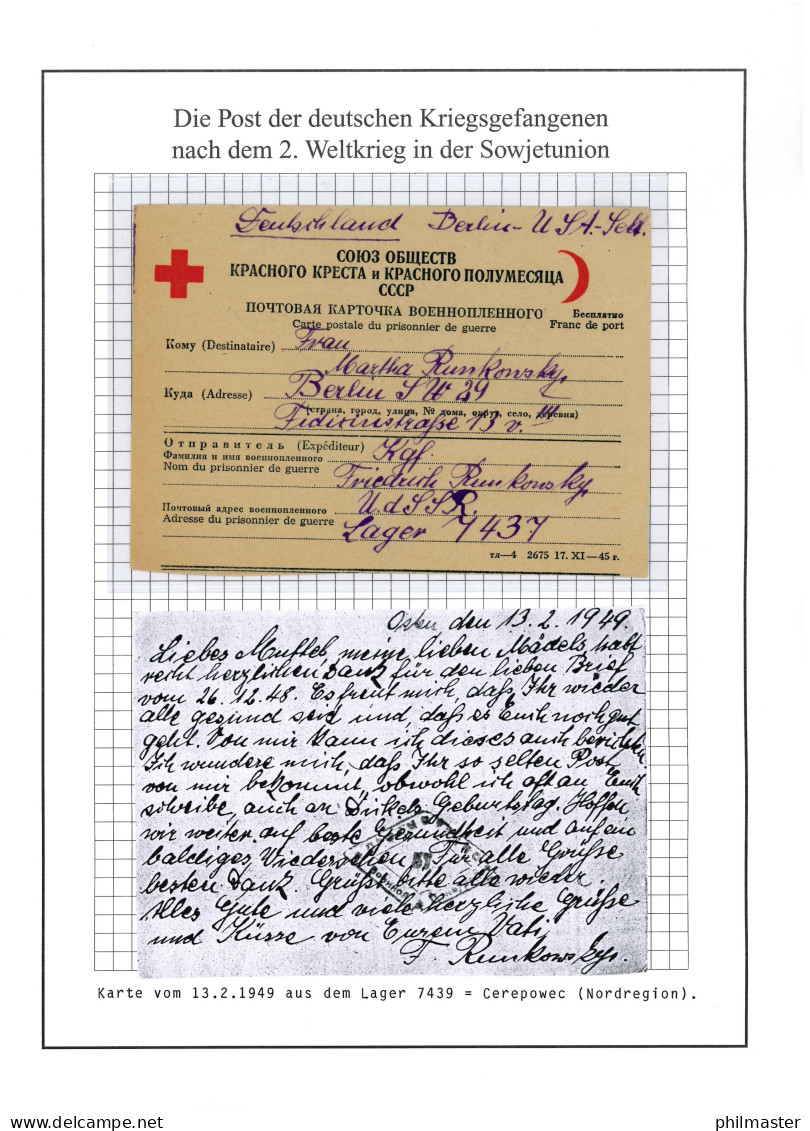 Die Post der deutschen Kriegsgefangenen
nach dem 2. Weltkrieg in der Sowjetunion
Deutschland Berlin - USA-Sekt.
СОЮЗ ОБЩЕСТВ
КРАСНОГО КРЕСТА и КРАСНОГО ПОЛУМЕСЯЦА
СССР
ПОЧТОВАЯ КАРТОЧКА ВОЕННОПЛЕННОГО Бесплатно
Carte postale du prisonnier de guerre Franc de port
Кому (Destinataire) Frau
Martha Runkowsky,
Куда (Adresse) Berlin SW 29
(страна, город, улица, № дома, округ, село, деревня)
13 v. III
Отправитель (Expéditeur) Kgf.
Фамилия и имя военнопленного
Nom du prisonnier de guerre Friedrich Runkowsky,
Почтовый адрес военнопленного UdSSR,
Adresse du prisonnier de guerre Lager 7437
тл—4 2675 17. XI—45 г.
Osten den 13.2.1949.
Liebes Muttel, meine lieben Mädels, habt
recht herzlichen Dank für den lieben Brief
vom 26.12.48. Es freut mich, daß Ihr wieder
alle gesund seid und, daß es Euch noch gut
geht. Von mir kann ich dieses auch berichten.
Ich wundere mich, daß Ihr so selten Post
von mir bekommt, obwohl ich oft an Euch
schreibe, auch an Geburtstag. Hoffen
wir weiter auf beste Gesundheit und auf ein
baldiges Wiedersehen. Für alle Grüße
besten Dank. Grüßt bitte alle wieder.
Alles Gute und viele herzliche Grüße
und Küsse von Eurem Vati,
F. Runkowsky.
Karte vom 13.2.1949 aus dem Lager 7439 = Cerepowec (Nordregion).
philmaster